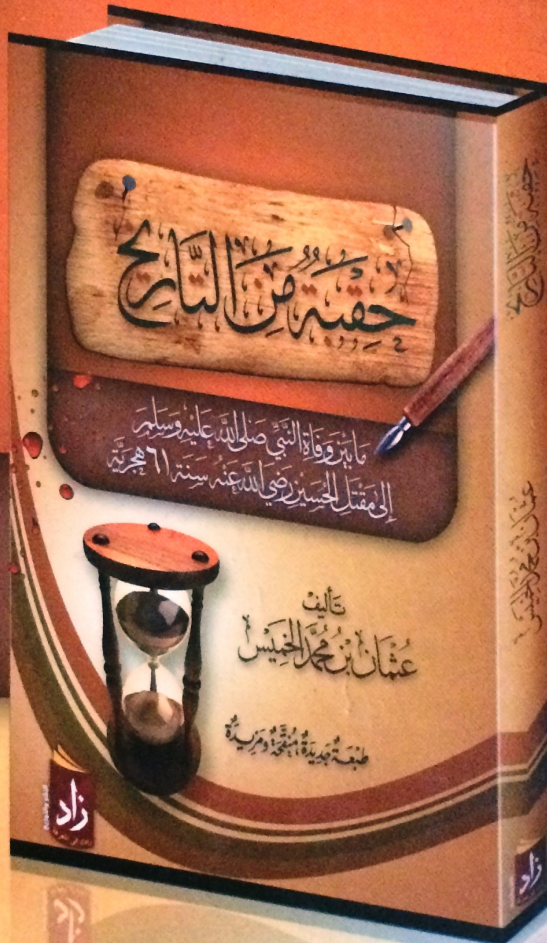 حِقْبَةٌ مِنَ التَّارِيخِ
مَا بَيْنَ وَفَاةِ النَّبِيِّ صَلَى اللَّه عَلَيْهِ وَسَلَّمَ
إِلَى مَقْتَلِ الْحُسَيْنِ رَضِيَ اللَّه عَنْهُ سَنَة ٦١ هِجْرِيَّة
تَأليف
عُثْمَان بْنُ مُحَمَّد الْخَمِيسُ
طَبْعَةٌ جَدِيدَةٌ، مُنَقَّحَةٌ وَمَزِيدَةٌ
زاد
حقبة من التاريخ
عثمان بن محمد الخميس
زاد